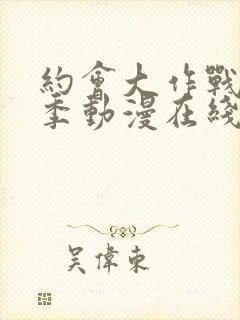 約會大作戰
季動漫在綫
吳偉東